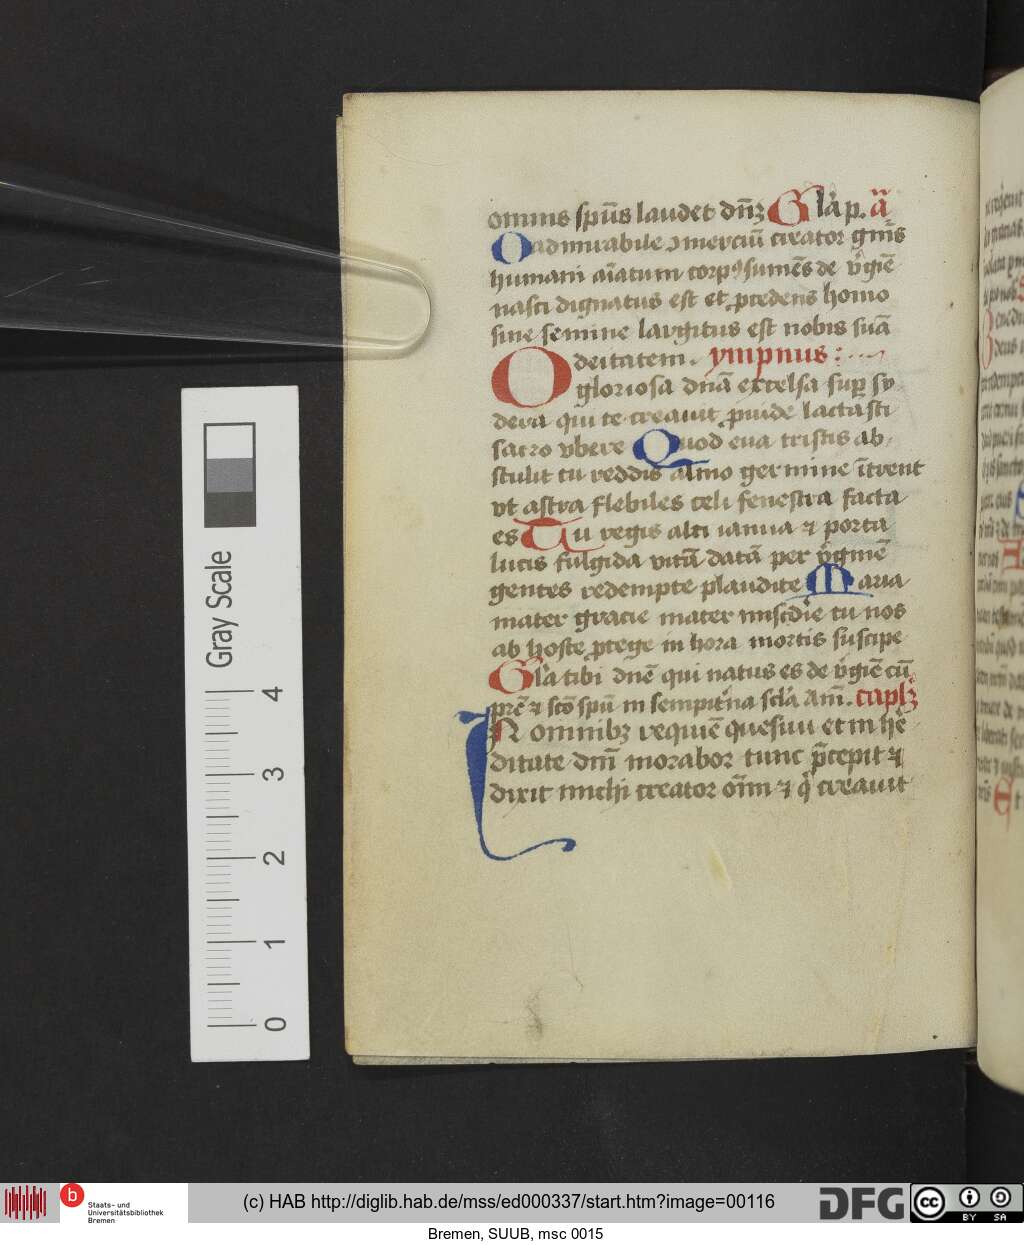 omnis spūs laudet dn̄ꝫ Gl̄a p. a̅
O admirabile ɔmerciū creator gn̄is
humani aīatum corpꝯ sumēs de v̓giē
nasci dignatus est et ꝓcedens homo
sine semine largitus est nobis suā
deitatem. ympnus :
O gloriosa dn̄a excelsa suꝑ sy
dera qui te creauit ꝓuide lactasti
sacro vbere Quod eua tristis ab
stulit tu reddis almo germine ītrent
vt astra flebiles celi fenestra facta
es Tu regis alti ianua ⁊ porta
lucis fulgida vitā datā per v̓ginē
gentes redempte plaudite Maria
mater gracie mater mīscdie tu nos
ab hoste ꝓtege in hora mortis suscipe
Gl̄a tibi dn̄e qui natus es de v̓giē cū
pr̄e ⁊ sc̄o spū in sempit̓na scl̄a Am̄. capl̓ꝫ
IN omnibꝫ requiē quesiui et in he̓
ditate dn̄i morabor tunc p̄cepit ⁊
dixit michi creator oīm ⁊ q̓ creauit
Gray Scale
4
3
2
1
0
b Staats- und
Universitätsbibliothek
Bremen
(c) HAB http://diglib.hab.de/mss/ed000337/start.htm?image=00116
DFG
cc BY SA
Bremen, SUUB, msc 0015